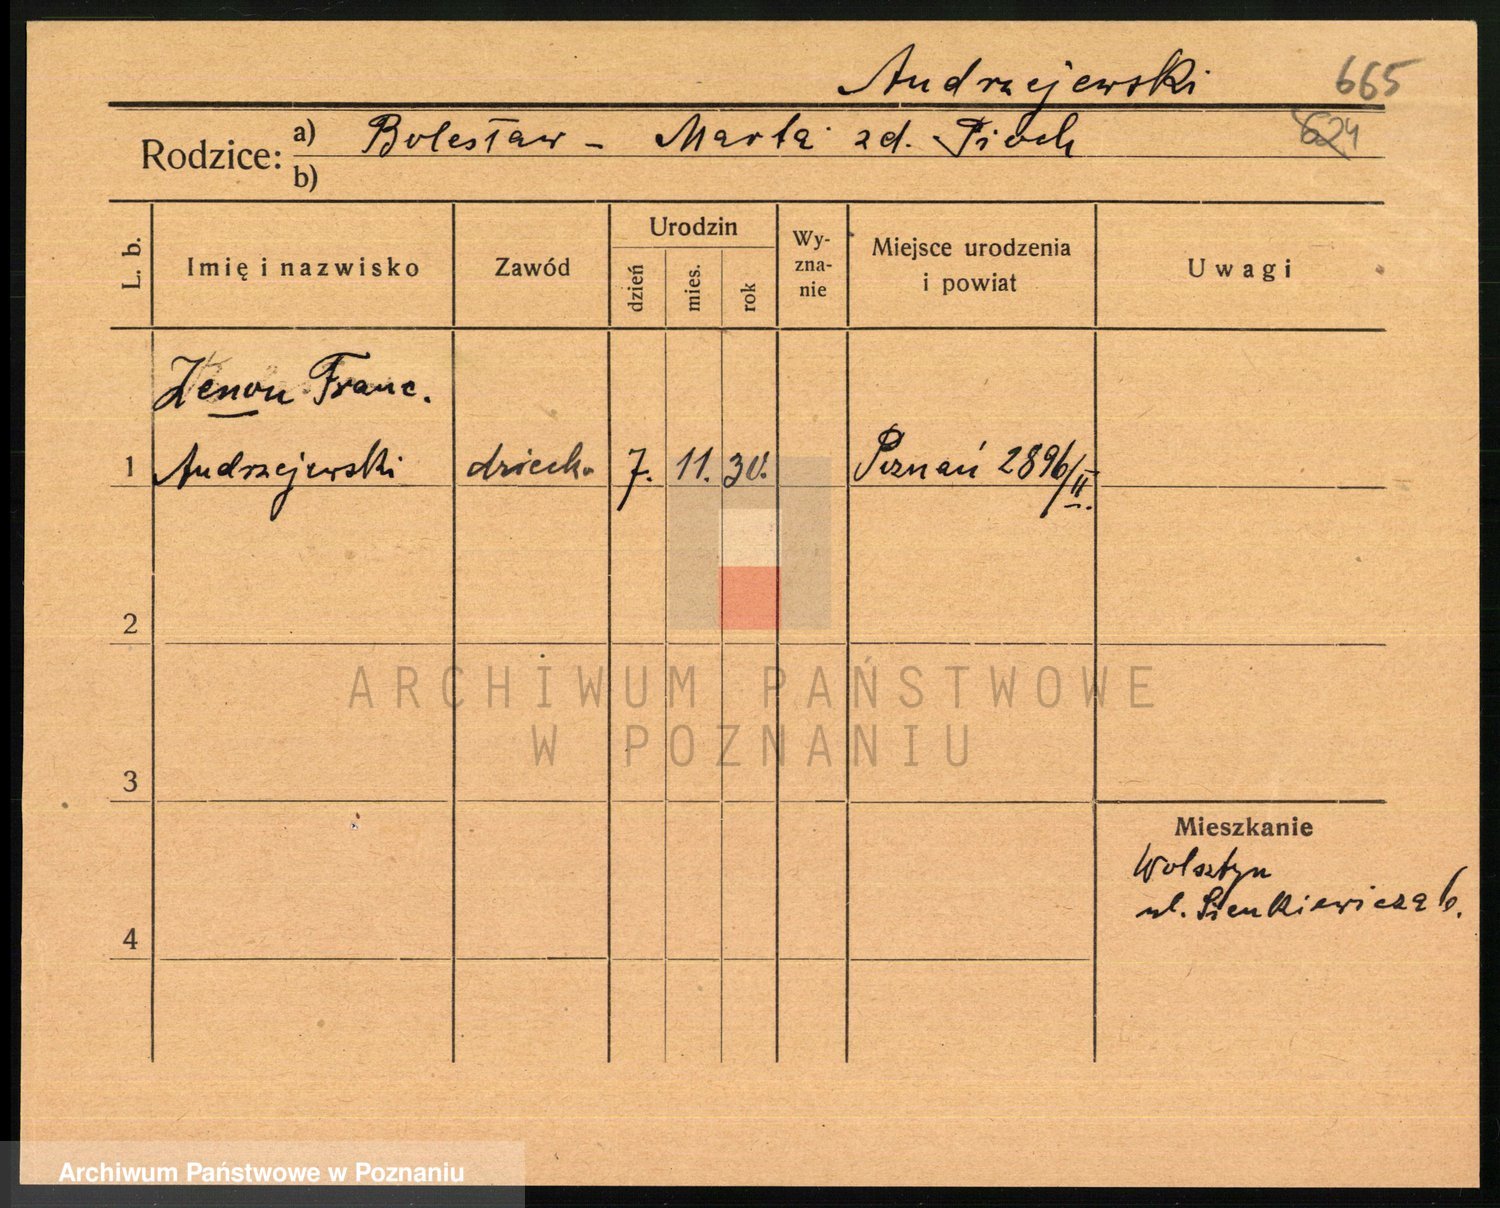 Andrzejewski 665
Rodzice: a) Bolesław - Marta zd. Pioch 624
b)
L. b. Imię i nazwisko Zawód Urodzin dzień mies. rok Wy-zna-nie Miejsce urodzenia i powiat Uwagi
Zenon Franc.
1 Andrzejewski dziecko 7. 11. 30. Poznań 2896/II.
2
ARCHIWUM PAŃSTWOWE
W POZNANIU
3
Mieszkanie
Wolsztyn
ul. Sienkiewicza 6.
4
Archiwum Państwowe w Poznaniu